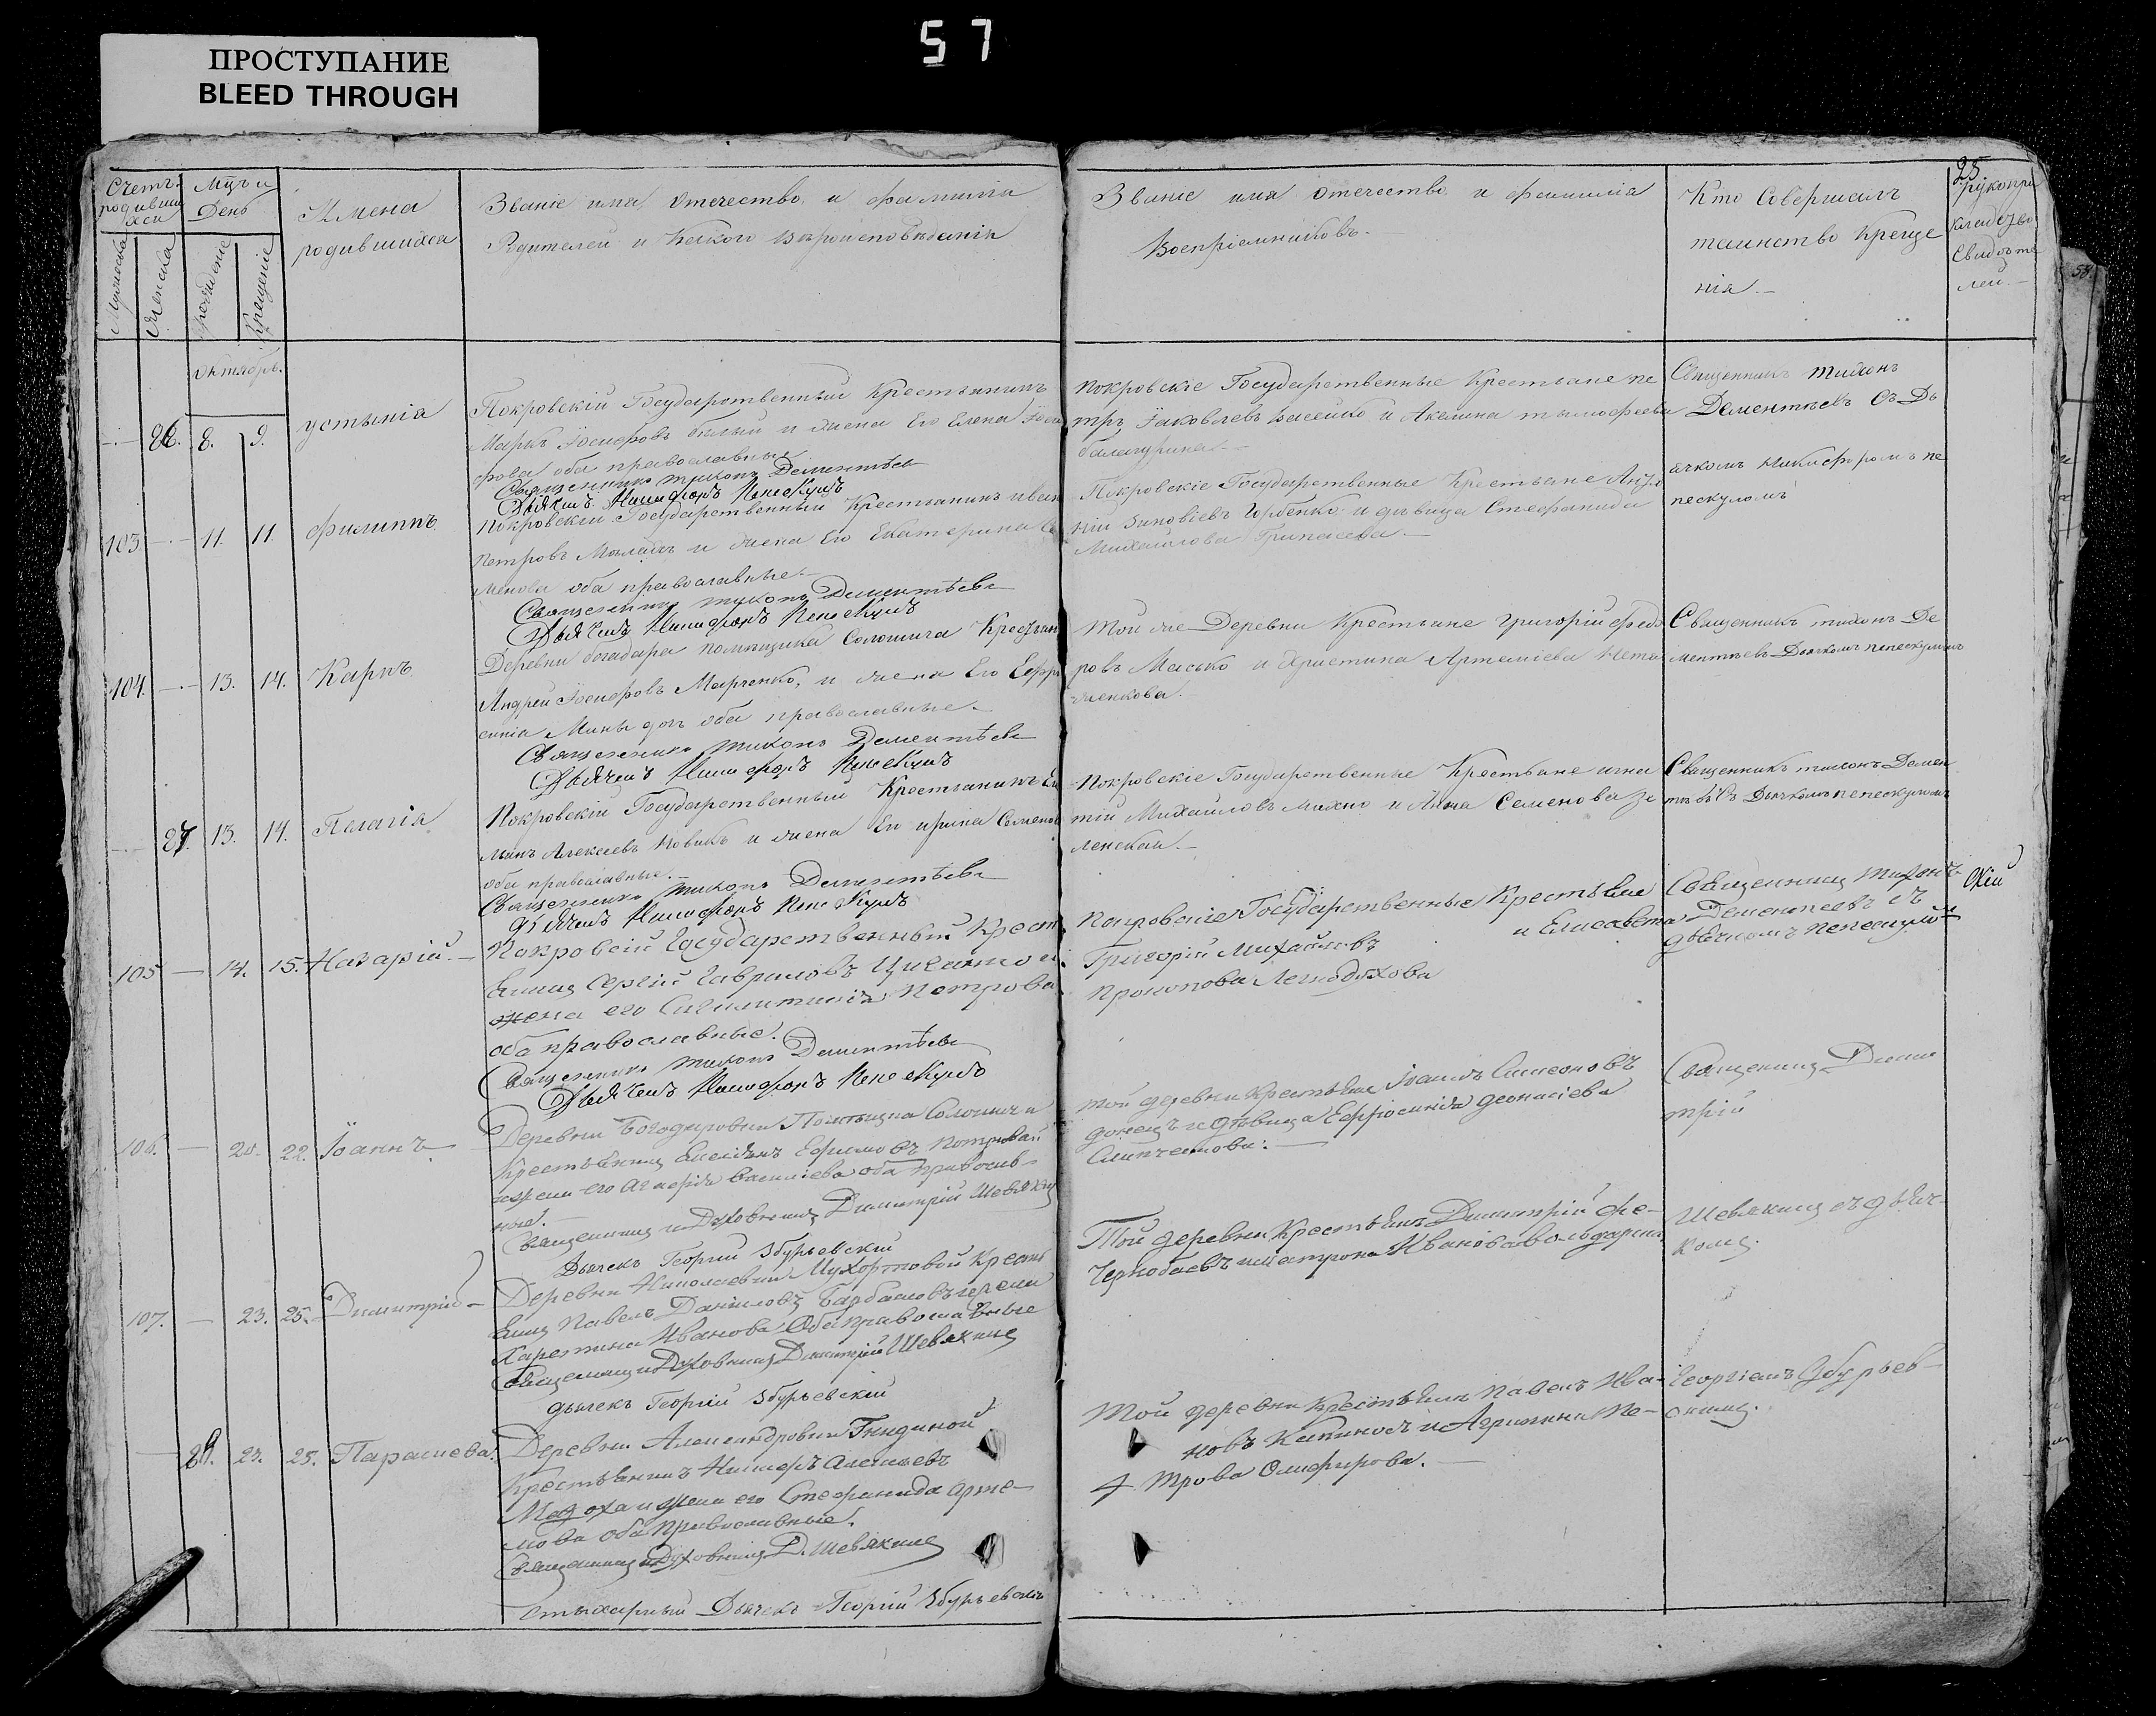 57
ПРОСТУПАНИЕ
BLEED THROUGH
25
Счетъ
родивших
хся
Мужеска
Женска
Мц̃ъ и
День
рожденіе
Крещеніе
Имена
родившихся
Званіе имя Отечество, и фамилія
Родителей и Какого Вѣроисповѣданія
Званіе имя Отечество и фамилія
Воспріемниковъ.
Кто Совершалъ
таинство Креще
нія.
рукопри
кладство
Свидѣте
лей.
Октябрь.
86. 8. 9.
устынія
Покровскій Государственный Крестьянинъ
Маркъ Іосифовъ бѣлый и жена Его Елена
фова оба православные
Священникъ тихонъ Дементѣевъ
Дьячекъ Никифоръ Пепескулъ
Покровскіе Государственные Крестьяне пе
тръ Іаковлевъ Васейко и Акелина тимофеева
балагурина
Священникъ тихонъ
Дементьевъ Съ Дь
ячкомъ Никифоромъ пе
пескуломъ
103 11. 11.
Филиппъ
Покровскій Государственный Крестьянинъ иванъ
Петровъ и жена Его Екатерина Се
менова оба православные
Священникъ тихонъ Дементѣевъ
Дьячекъ Никифоръ Пепескулъ
Покровскіе Государственные Крестьяне
ній Зиновіевъ Горбенко и дѣвица Стефанида
Михайлова
104. 13. 14.
Карпъ
Деревни богадара помѣщика Соломича Крестьян
Андрей Іосифовъ Марченко, и жена Его Ефро
синія Мины доч оба православные
Священникъ тихонъ Дементѣевъ
Дьячекъ Никифоръ Пепескулъ
Той же Деревни Крестьяне григорій федо
ровъ Масько и Христина Артеміева Нета
женкова.
Священникъ тихонъ Де
ментьевъ Дьячкомъ пепескуломъ
87. 13. 14.
Пелагія
Покровскій Государственный Крестьянинъ Еме
льянъ Алексѣевъ Новикъ и жена Ег ирина Семенова
оба православные.
Священникъ тихонъ Дементѣевъ
Дьячекъ Никифоръ Пепескулъ
Покровскіе Государственные Крестьяне игна
тій Михайловъ Махно и Анна Семенова зе
ленская.
Священникъ тихонъ Демен
тьевъ Съ Дьячкомъ пепескуломъ
105 14. 15.
Назарій.
Покровскій Государственный Крест
янинъ Сергій Гавриловъ Циганко и
жена его Петрова
оба православные.
Священникъ тихонъ Дементѣевъ
Дьячекъ Никифоръ Пепескулъ
Покровскіе Государственные Крестьяне
Григорій Михайловъ и Елисавета
Прокопова Легкодухова
Священникъ Тихонъ
Дементьевъ съ
дьячкомъ Пепескулом
106. 20. 22.
Іоаннъ
Деревни Богодаровки Помѣщика Соломича
Крестьянинъ Ефимовъ
жена его Васильева оба православ-
ные.
Священникъ и Духовникъ Димитрій Шевякинъ
Дьячекъ Георгій Збурьевскій
Той деревни Крестьяне Іоаннъ Симеоновъ
донецъ и дѣвица Евфросинія
Священникъ Дими
трій
107. 23. 25.
Димитрій
Деревни Николаевки Мухортовой Кресть
янинъ Павелъ Даниловъ жена
Харетина Иванова Оба православные
Священникъ и Духовникъ Димитрій Шевякинъ
дьячекъ Георгій Збурьевскій
Той деревни Крестьянъ Димитрій Фе-
Чернобаевъ и Матрона Иванова
Шевякинъ съ дьяч-
комъ
23. 25.
Параскева.
Деревни Александровки Гнединой
Крестьянинъ Никифоръ
и жена его Стефанида Арте-
мова оба Православные.
Священникъ и Духовникъ Д. Шевякинъ
Стихарный Дьячекъ Георгій Збурьевскій
Той деревни Крестьянинъ Павелъ Ива-
новъ и Агрипина Пе-
трова
Георгіемъ Збурьев-
скимъ.